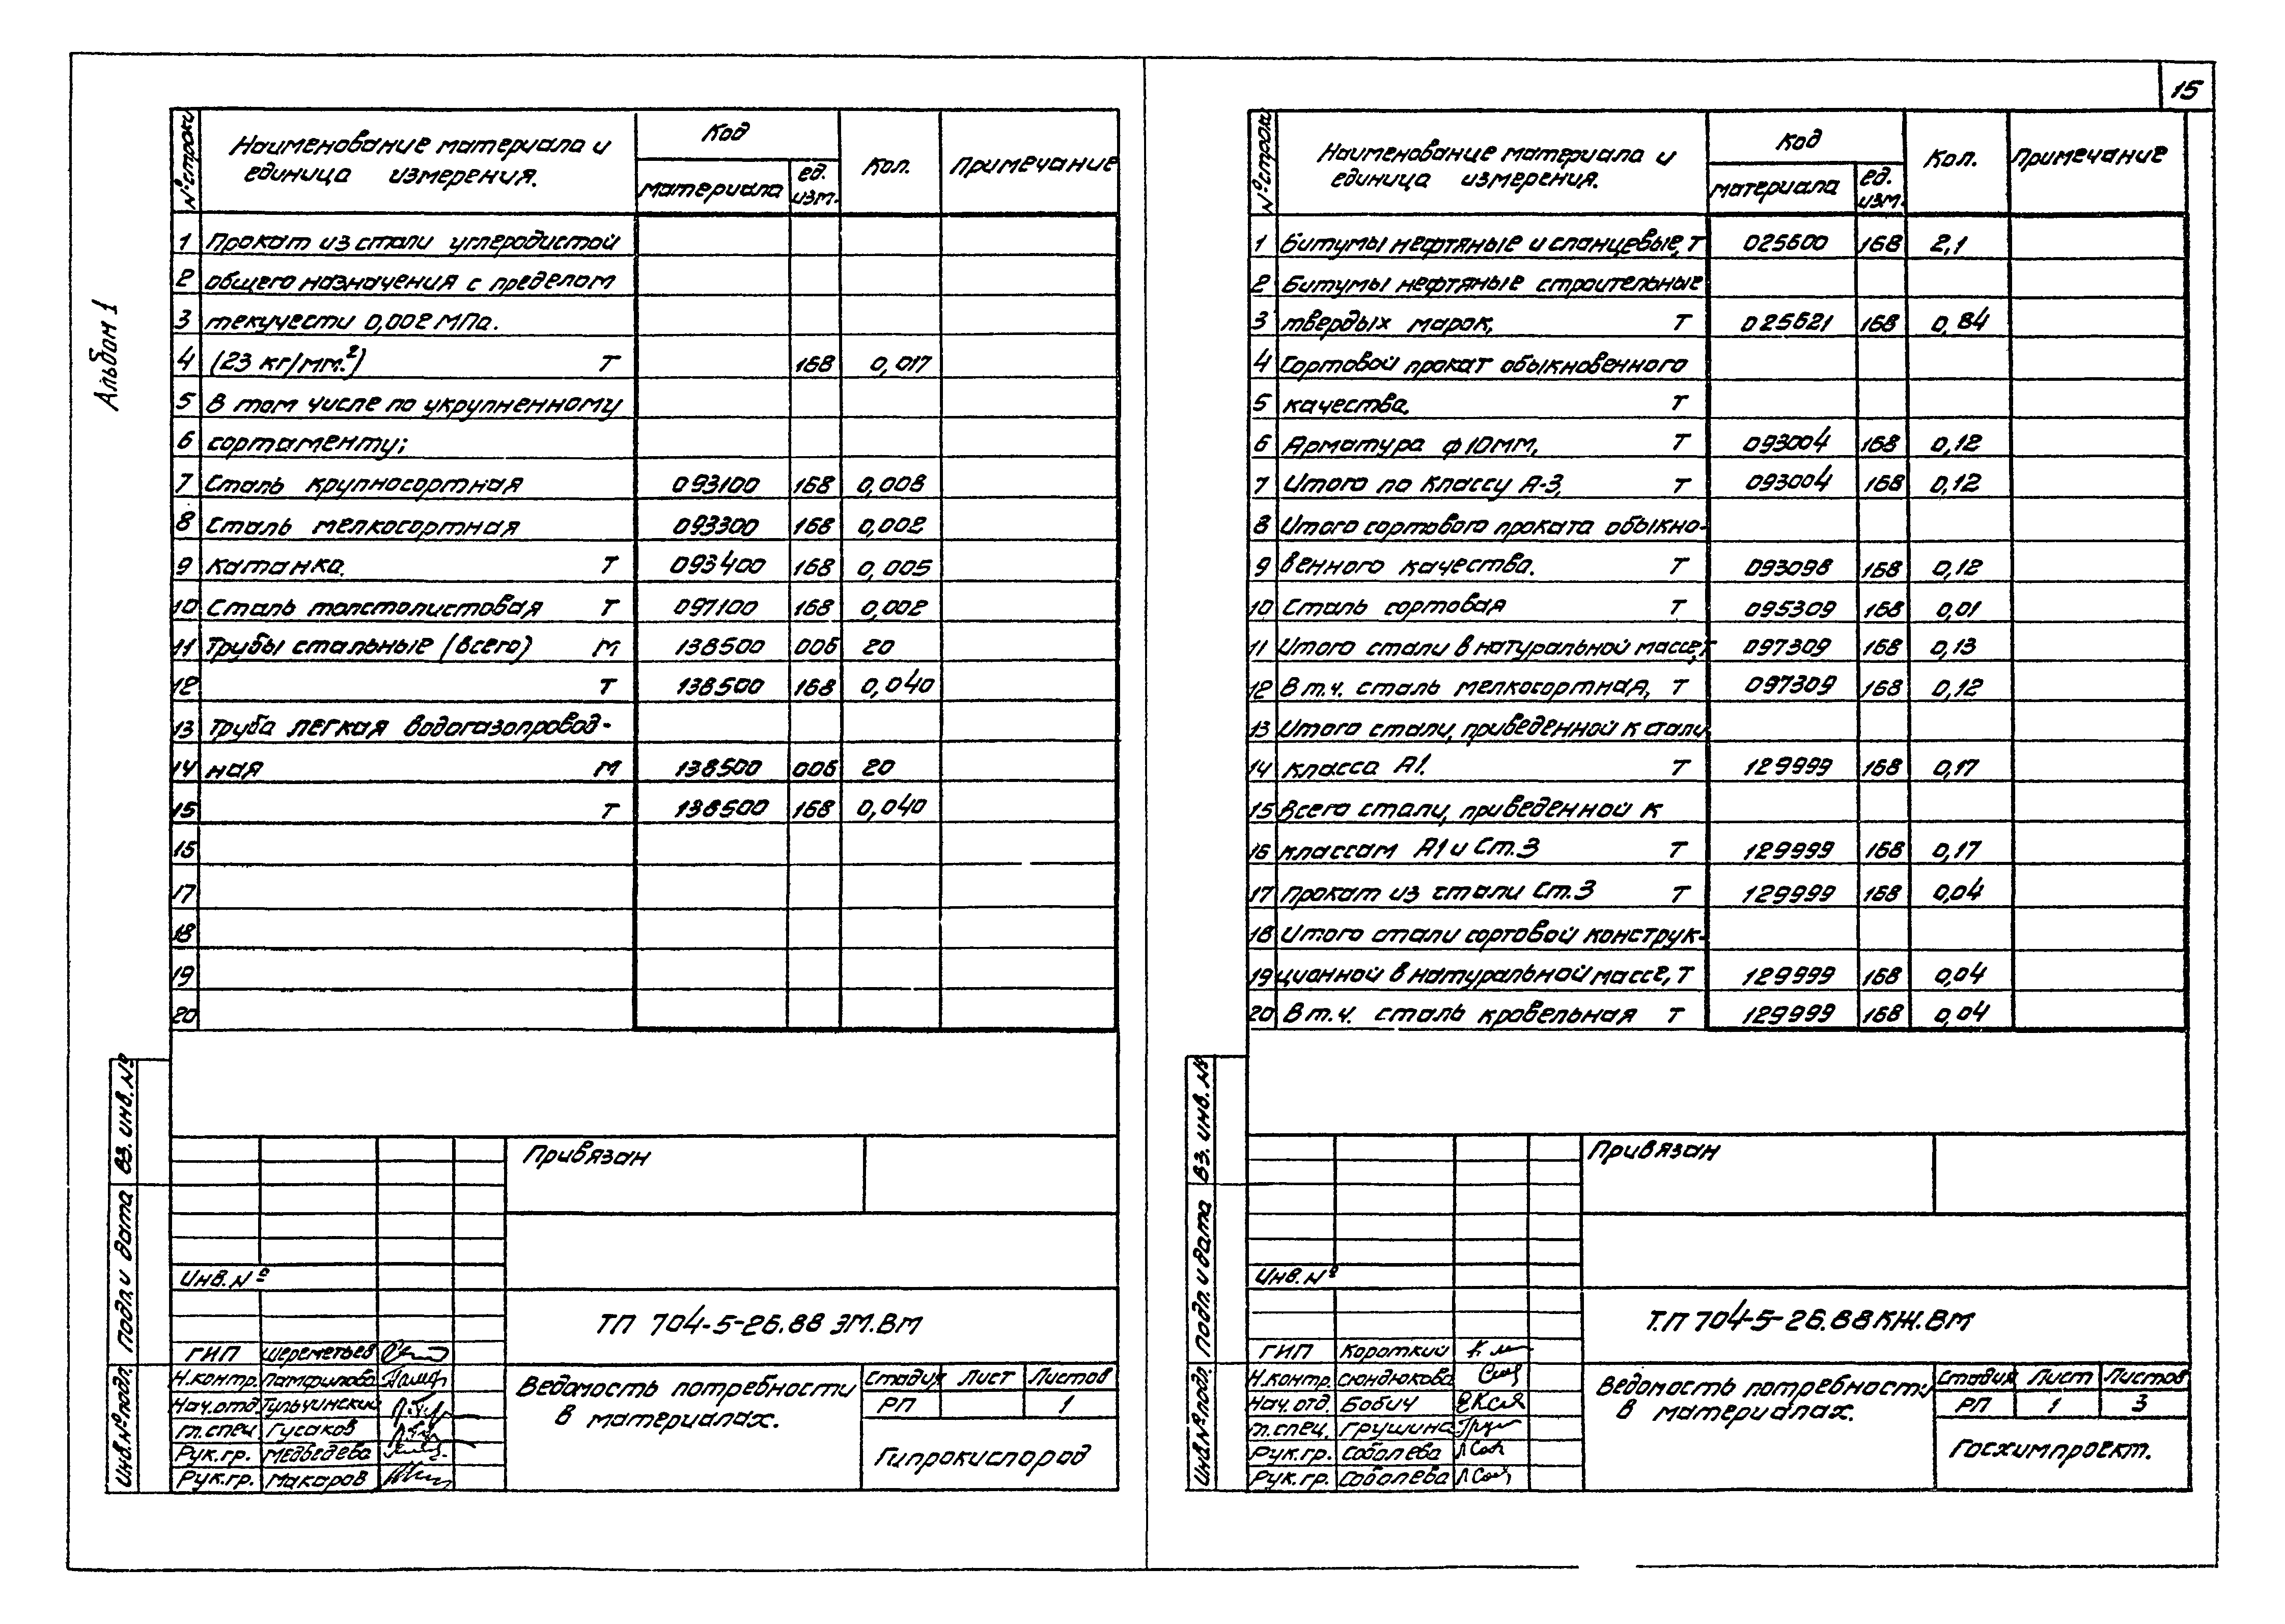 15
Альбом 1
№ строки | Наименование материала и единица измерения. | Код материала | Код ед. изм. | Кол. | Примечание
1 Прокат из стали углеродистой
2 общего назначения с пределом
3 текучести 0,002 МПа.
4 (23 кг/мм.²) Т 168 0,017
5 В том числе по укрупненному
6 сортаменту;
7 Сталь крупносортная 093100 168 0,008
8 Сталь мелкосортная 093300 168 0,002
9 Катанка. Т 093400 168 0,005
10 Сталь толстолистовая Т 097100 168 0,002
11 Трубы стальные (всего) М 138500 006 20
12 Т 138500 168 0,040
13 Труба легкая водогазопровод-
14 ная М 138500 006 20
15 Т 138500 168 0,040
15
17
18
19
20
Привязан
Инв. №
ТП 704-5-26.88 ЭМ.ВМ
ГИП Шереметьев
Н.контр. Памфилова
Нач.отд. Тульчинский
Гл.спец. Гусаков
Рук.гр. Медведева
Рук.гр. Макаров
Ведомость потребности
в материалах.
Стадия Лист Листов
РП 1
Гипрокислород
Инв.№ подл. Подп. и дата Вз. инв. №
№ строки | Наименование материала и единица измерения. | Код материала | Код ед. изм. | Кол. | Примечание
1 Битумы нефтяные и сланцевые, Т 025600 168 2,1
2 Битумы нефтяные строительные
3 твердых марок, Т 025621 168 0,84
4 Сортовой прокат обыкновенного
5 качества, Т
6 Арматура ф 10мм, Т 093004 168 0,12
7 Итого по классу А-3, Т 093004 168 0,12
8 Итого сортового проката обыкно-
9 венного качества. Т 093098 168 0,12
10 Сталь сортовая Т 095309 168 0,01
11 Итого стали в натуральной массе, Т 097309 168 0,13
12 В т.ч. сталь мелкосортная, Т 097309 168 0,12
13 Итого стали, приведенной к стали
14 класса А1. Т 129999 168 0,17
15 Всего стали, приведенной к
16 классам А1 и Ст.3 Т 129999 168 0,17
17 Прокат из стали Ст.3 Т 129999 168 0,04
18 Итого стали сортовой конструк-
19 ционной в натуральной массе, Т 129999 168 0,04
20 В т.ч. сталь кровельная Т 129999 168 0,04
Привязан
Инв. №
Т.П 704-5-26.88 КЖ.ВМ
ГИП Короткий
Н.контр. Сюндюкова
Нач.отд. Бобич
Гл.спец. Грушина
Рук.гр. Соболева
Рук.гр. Соболева
Ведомость потребности
в материалах.
Стадия Лист Листов
РП 1 3
Госхимпроект.
Инв.№ подл. Подп. и дата Вз. инв. №